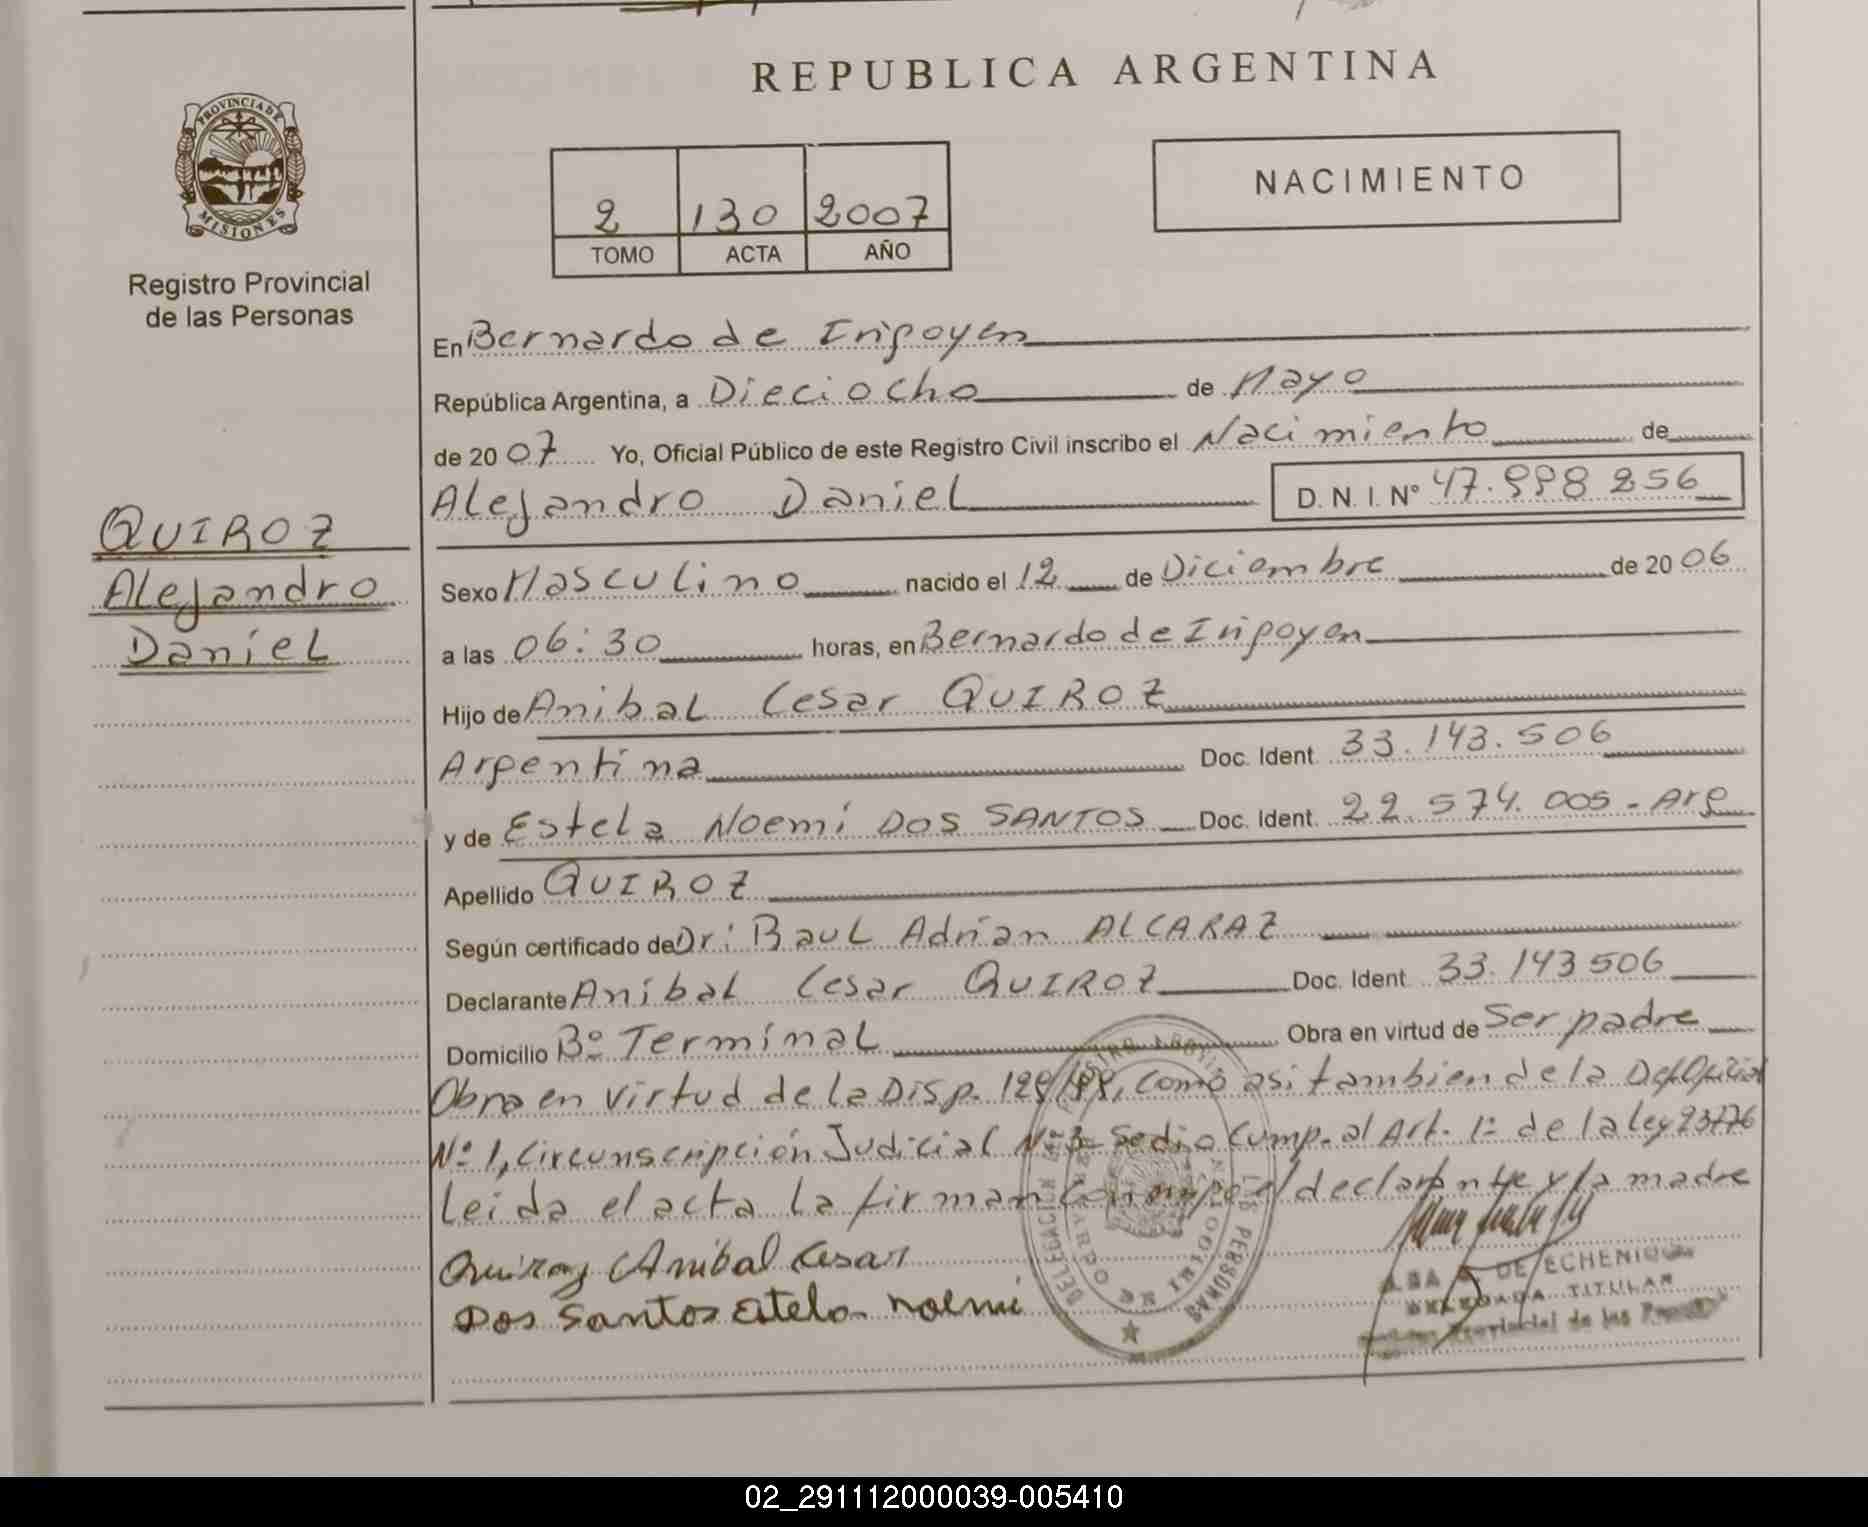 REPUBLICA ARGENTINA
PROVINCIA DE MISIONES
Registro Provincial
de las Personas
NACIMIENTO
2 130 2007
TOMO ACTA AÑO
En Bernardo de Irigoyen
República Argentina, a Dieciocho de Mayo
de 2007 Yo, Oficial Público de este Registro Civil inscribo el Nacimiento de
Alejandro Daniel D. N. I. Nº 47.998 256
QUIROZ
Alejandro
Daniel
Sexo Masculino nacido el 12 de Diciembre de 2006
a las 06:30 horas, en Bernardo de Irigoyen
Hijo de Anibal Cesar QUIROZ
Argentina Doc. Ident. 33.143.506
y de Estela Noemí DOS SANTOS Doc. Ident. 22.574.005 - Arg
Apellido QUIROZ
Según certificado de Dr: Raul Adrian ALCARAZ
Declarante Anibal Cesar QUIROZ Doc. Ident. 33.143506
Domicilio Bº Terminal Obra en virtud de Ser padre
Obra en virtud de la Disp. 129/99, como asi tambien de la Def. Oficial
Nº 1, Circunscripción Judicial Nº 3- Se dio cump. al Art. 1º de la ley 23776
Leida el acta la firman conmigo el declarante y la madre
Quiroz Anibal Cesar
Dos Santos Estela noemi
DE ECHENIQUE
DELEGADA TITULAR
Provincial de las Personas
02_291112000039-005410